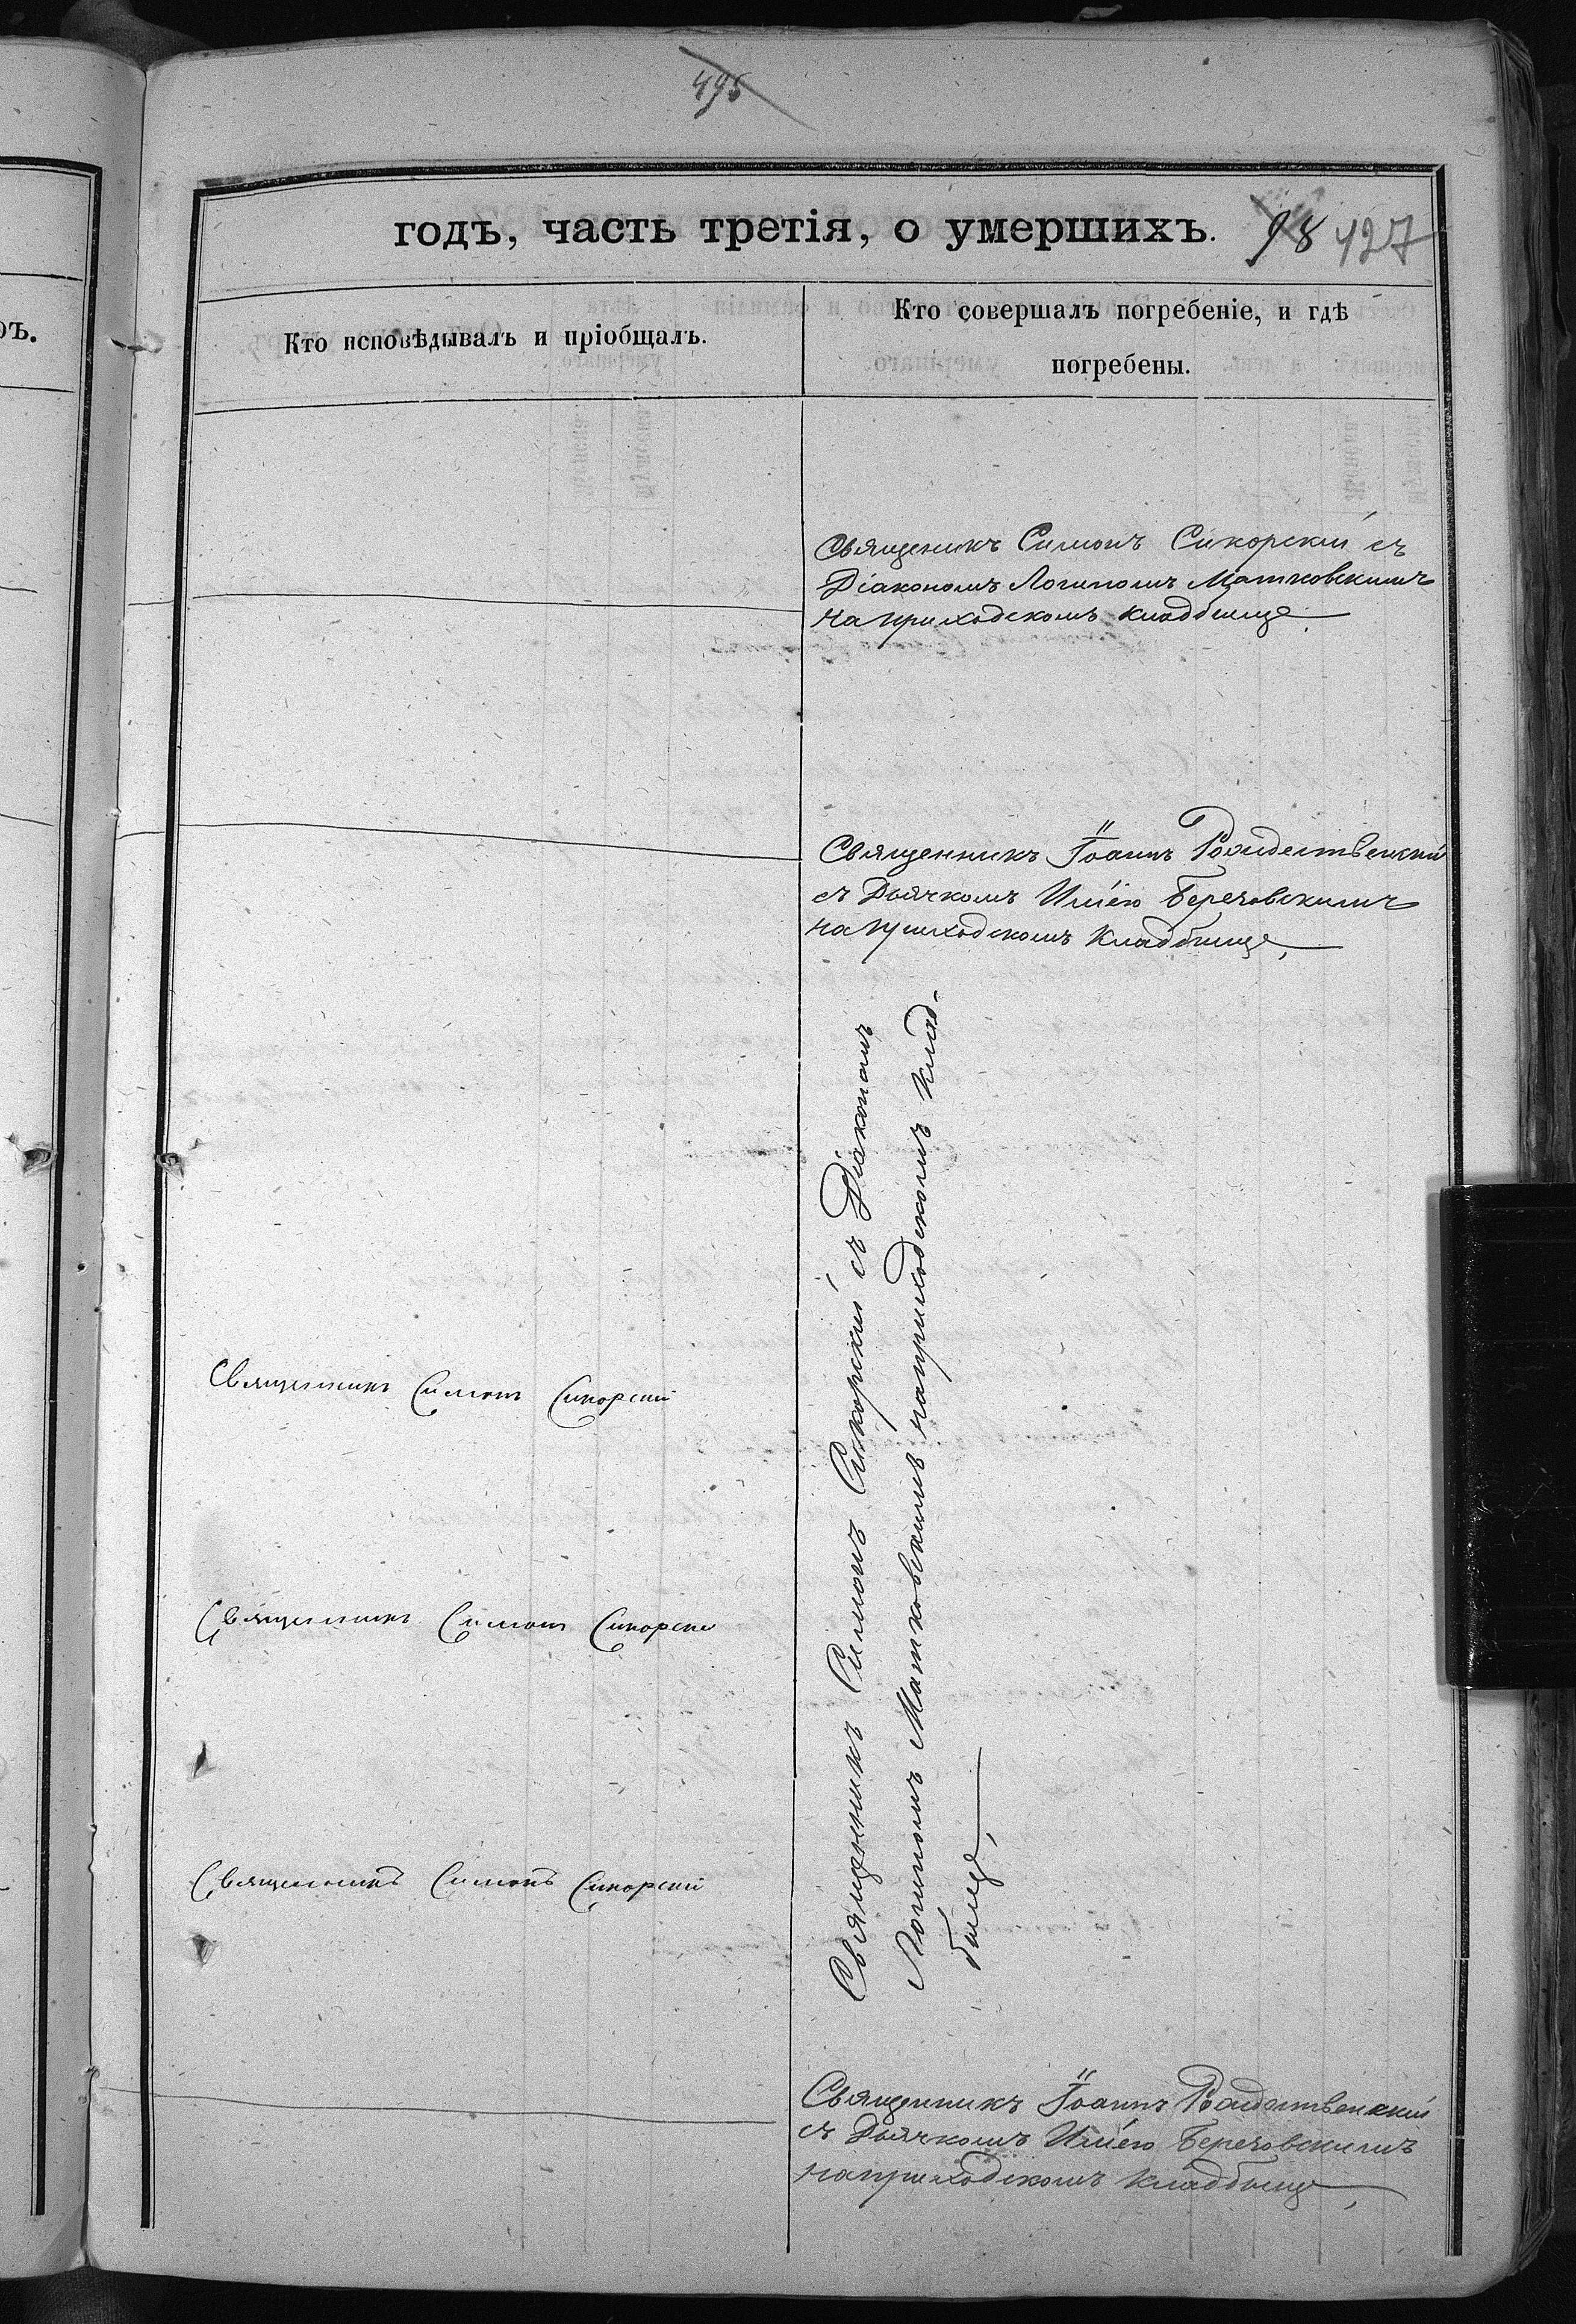 495
годъ, часть третія, о умершихъ.
98 427
ръ.
Кто исповѣдывалъ и пріобщалъ.
Кто совершалъ погребеніе, и гдѣ
погребены.
Священикъ Симонъ Сикорскій съ
Діакономъ Логиномъ Матковскимъ
на приходскомъ кладбище
Священникъ Іоаннъ Рождественскій
съ Дьячкомъ Иліею Березовскимъ
на приходскомъ Кладбище,
Священникъ Симонъ Сикорскій
Священникъ Симонъ Сикорскій
Священникъ Симонъ Сикорскій
Священникъ Симонъ Сикорскій съ Діакономъ
Логиномъ Матковскимъ на приходскомъ Клад-
бище,
Священникъ Іоаннъ Рождественскій
съ Дьячкомъ Иліею Березовскимъ
на приходскомъ Кладбище,